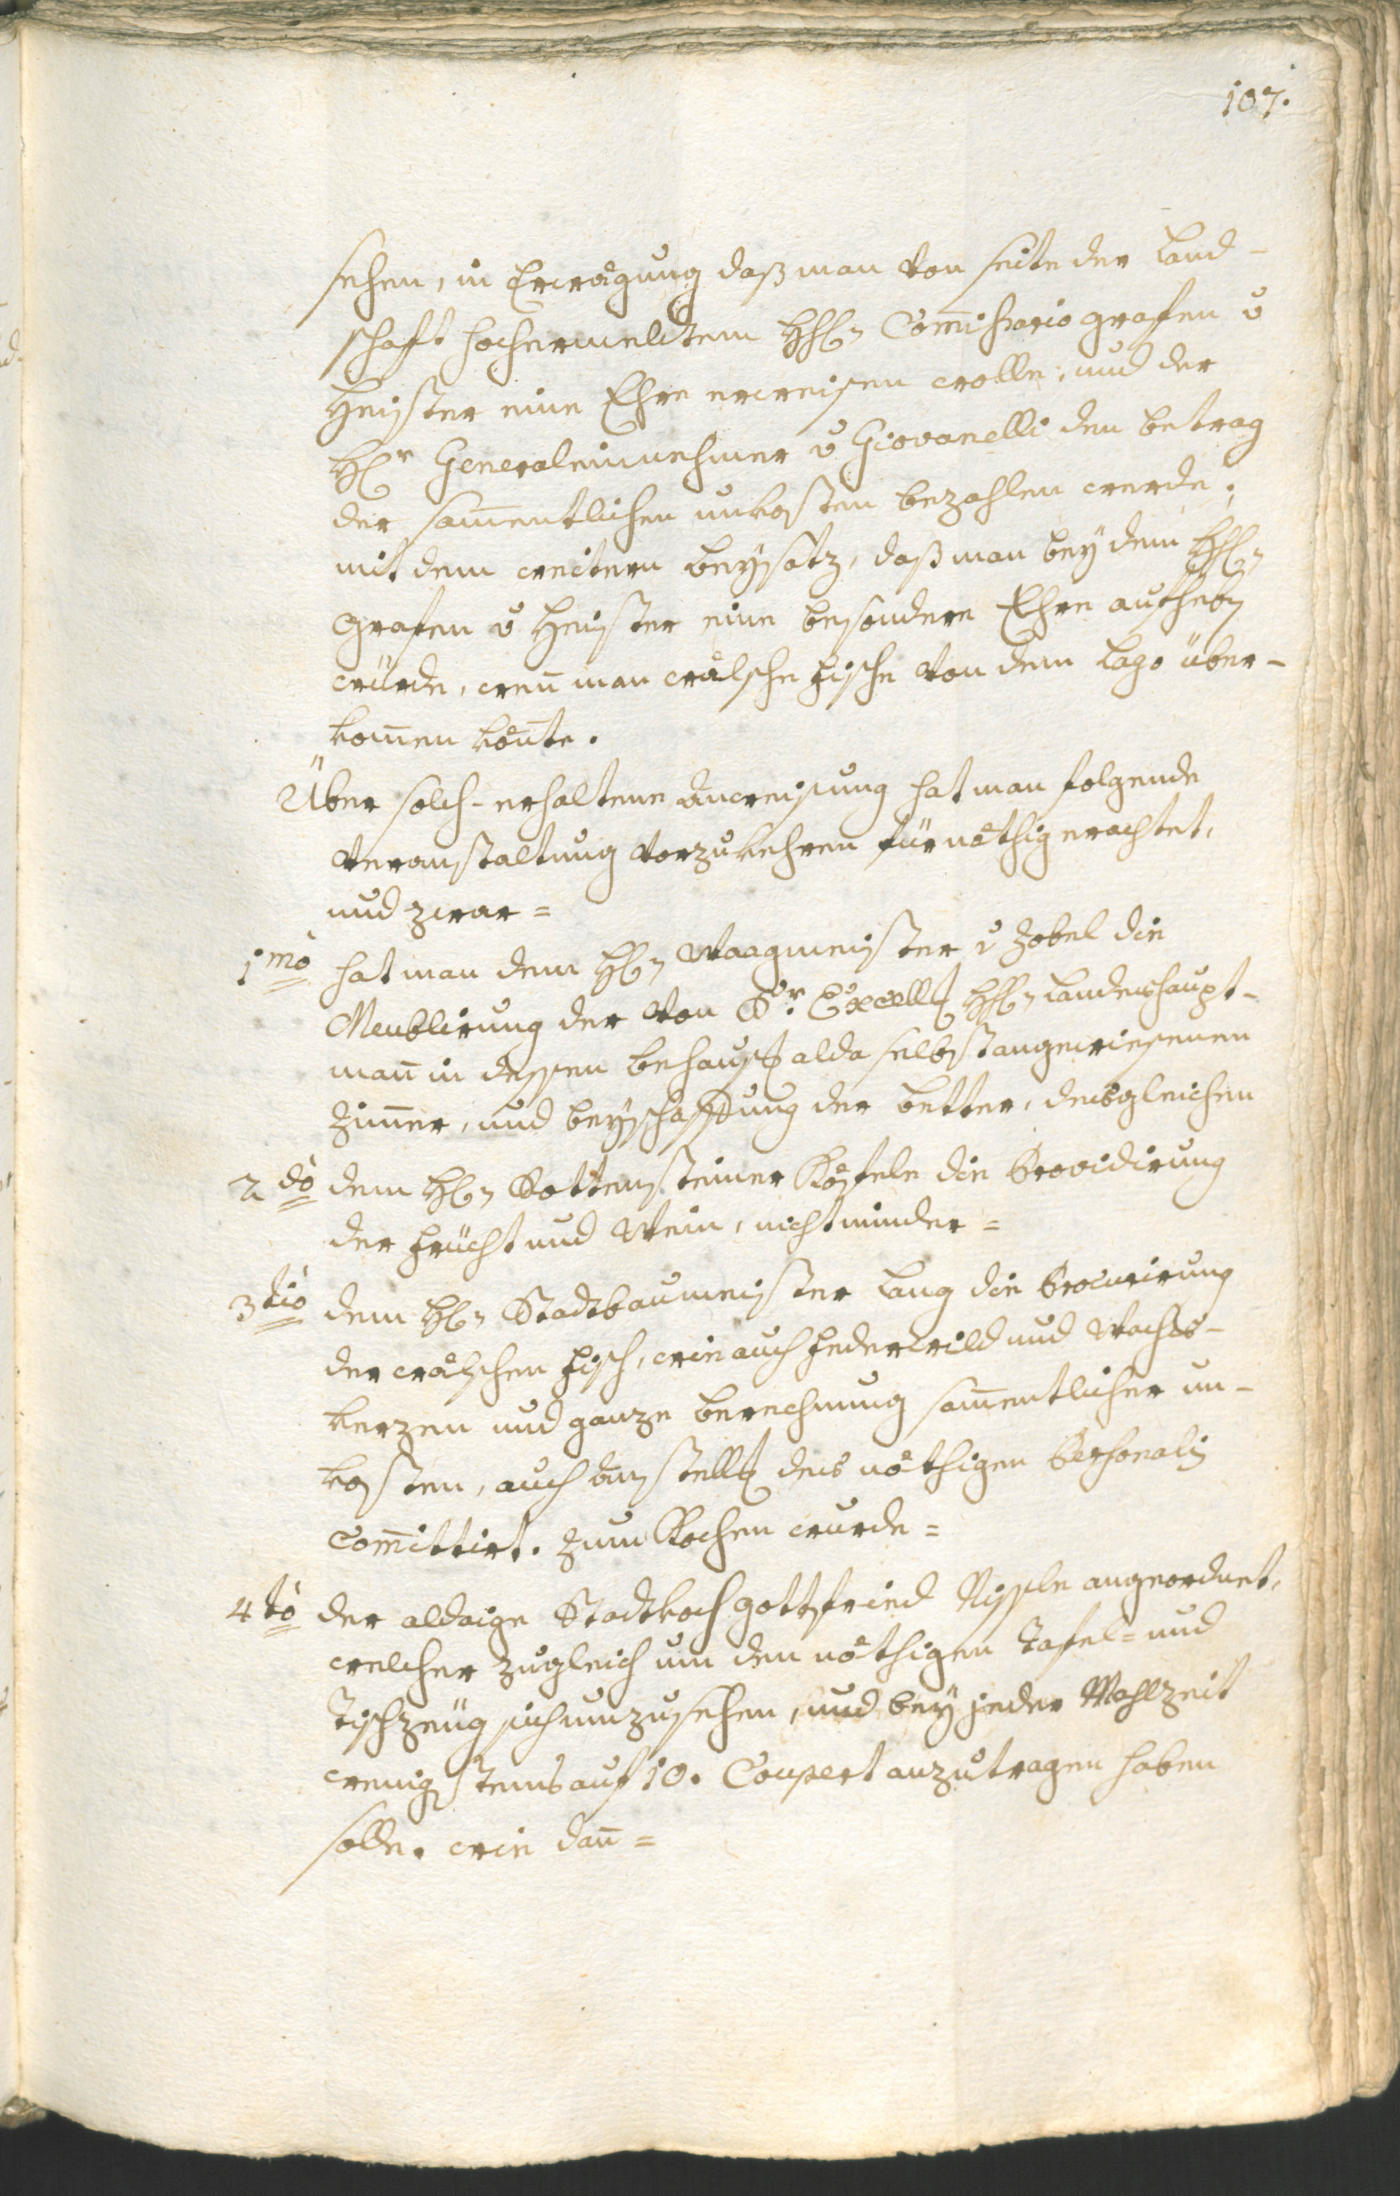 107.
sehen, in Erwägung daß man von seite der Land-
schaft hochermeldtem HH. Commissario grafen v
Heister eine Ehre erweisen wolle, und der
Hr Generaleinnehmer v Giovanelli den betrag
der sam̅entlichen unkosten bezahlen werde;
mit dem weitern beysatz, daß man bey dem HH.
Grafen v Heister eine besondere Ehre aufheben
würde, wen̅ man wälsche fische von dem Lago über-
kom̅en kön̅te.
Über solch-erhaltene anweisung hat man folgende
veranstaltung vorzukehren für nöthig erachtet,
und zwar =
1mo hat man dem H. Waagmeister v Zobel die
Meublirung der von Sr. Excell. HH. Landeshaupt-
man̅ in dessen behausg alda selbst angewiesenen
Zim̅er, und beyschaffung der better, desgleichen
2do dem H. Rottensteiner Köfele die Providirung
der frücht und Wein, nicht minder =
3tio dem H. Stadtbaumeister Lang die Procurirung
der wälschen fisch, wie auch federwild und Wachs-
kerzen und ganze berechnung sam̅entlicher un-
kosten, auch anstellg des nöthigen Personalis
Com̅ittirt. Zum Kochen wurde =
4to der aldaige Stadtkoch Gottfried Nissle angeordnet,
welcher zugleich um den nöthigen Tafel= und
Tischzeüg sich umzusehen, und bey jeder Mahlzeit
wenigstens auf 10. Coupert anzutragen haben
solle. wie dan̅ =